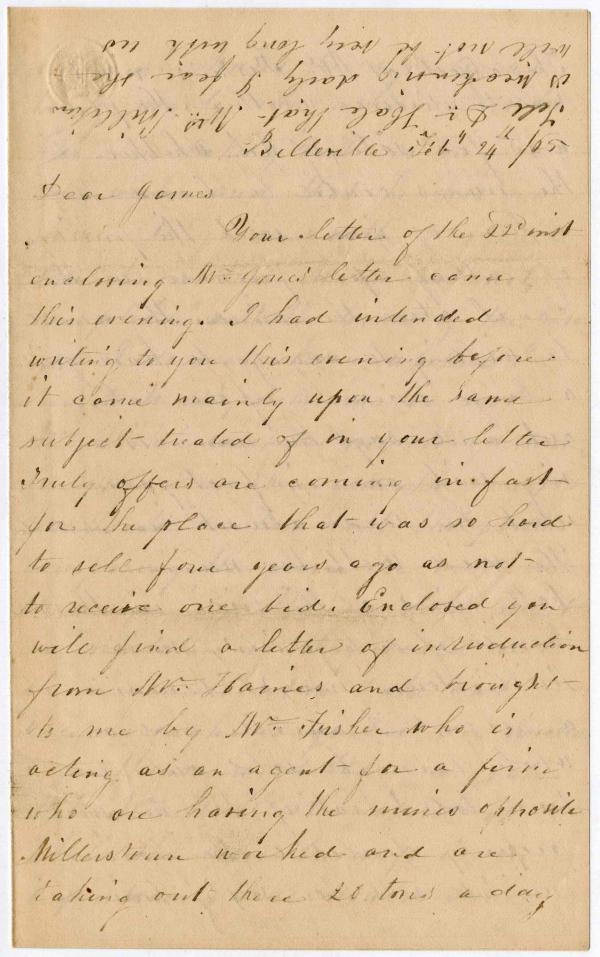 Tell Dr. Hale that Mrs. Milliken
is weakening daily I fear she
will not be very long with us
Belleville Feb" 24" /65
Dear James
Your letter of the 22d inst
enclosing Mr Jones' letter came
this evening. I had intended
writing to you this evening before
it came mainly upon the same
subject treated of in your letter
Truly offers are coming in fast
for the place that was so hard
to sell four years ago as not
to receive one bid. Enclosed you
will find a letter of introduction
from Mr. Haines and brought
to me by Mr. Fisher who is
acting as an agent for a firm
who are having the mines opposite
Millerstown worked and are
taking out there 20 tons a day